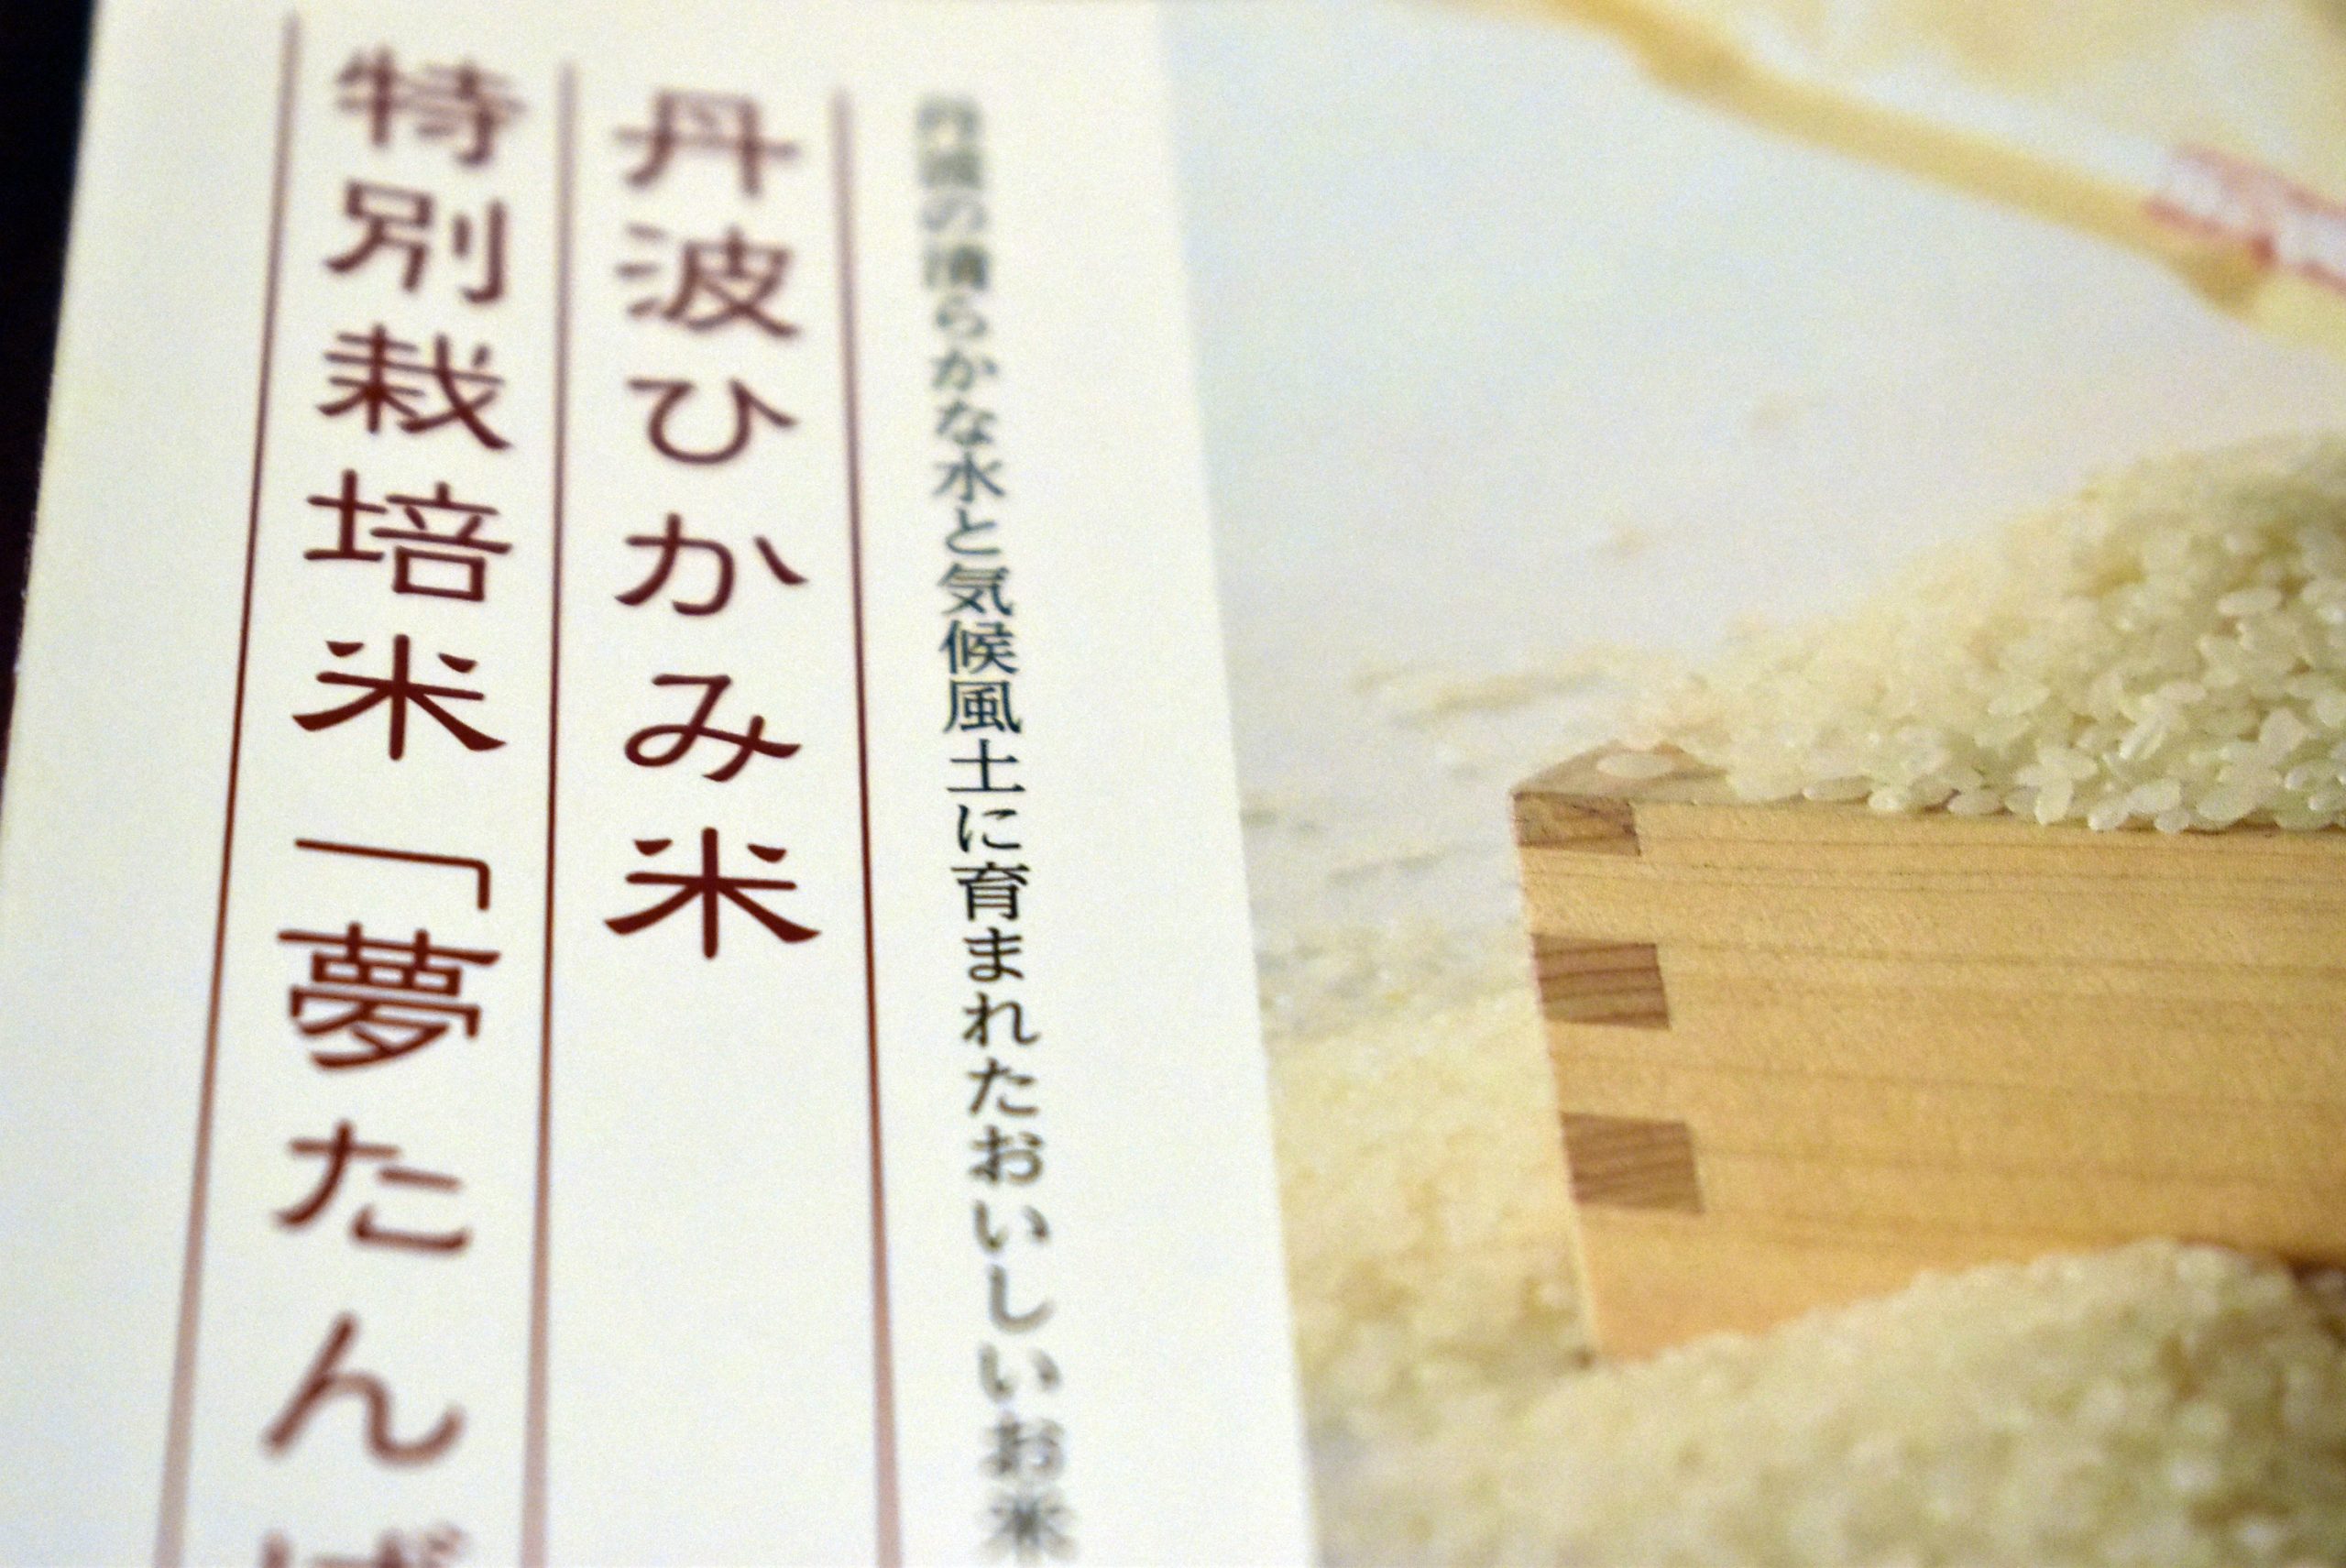 丹波の清らかな水と気候風土に育まれたおいしいお米
丹波ひかみ米
特別栽培米「夢たんば